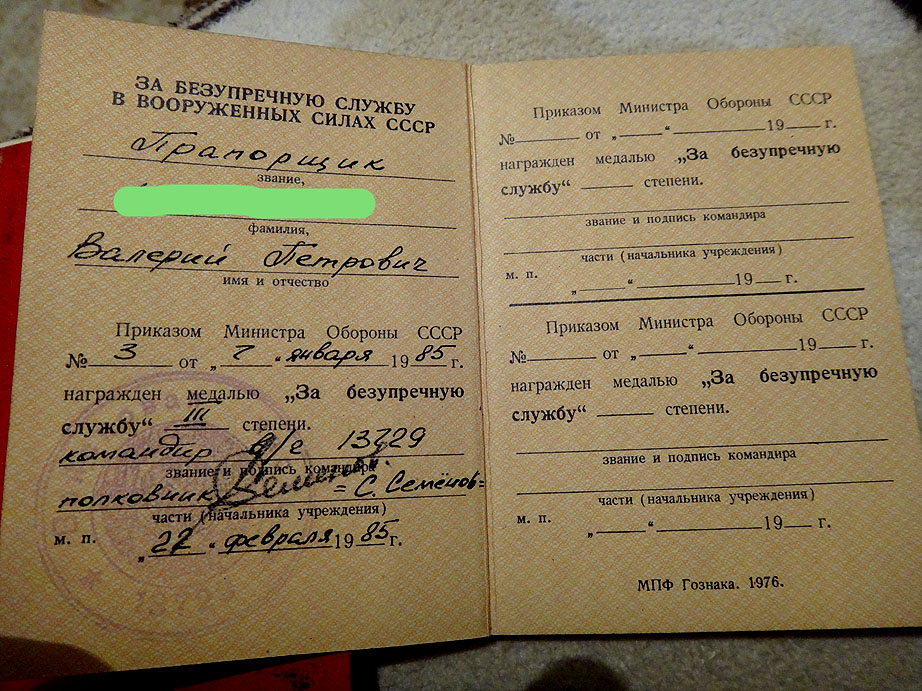 ЗА БЕЗУПРЕЧНУЮ СЛУЖБУ
В ВООРУЖЕННЫХ СИЛАХ СССР
Прапорщик
звание,
фамилия,
Валерий Петрович
имя и отчество
Приказом Министра Обороны СССР
№ 3 от „ 2 “ января 1985 г.
награжден медалью „За безупречную
службу“ III степени.
командир в/ч 13729
звание и подпись командира
полковник = С. Семёнов =
части (начальника учреждения)
м. п.
„ 22 “ февраля 1985 г.
Приказом Министра Обороны СССР
№ от „ “ 19 г.
награжден медалью „За безупречную
службу“ степени.
звание и подпись командира
части (начальника учреждения)
м. п.
„ “ 19 г.
Приказом Министра Обороны СССР
№ от „ “ 19 г.
награжден медалью „За безупречную
службу“ степени.
звание и подпись командира
части (начальника учреждения)
м. п.
„ “ 19 г.
МПФ Гознака. 1976.